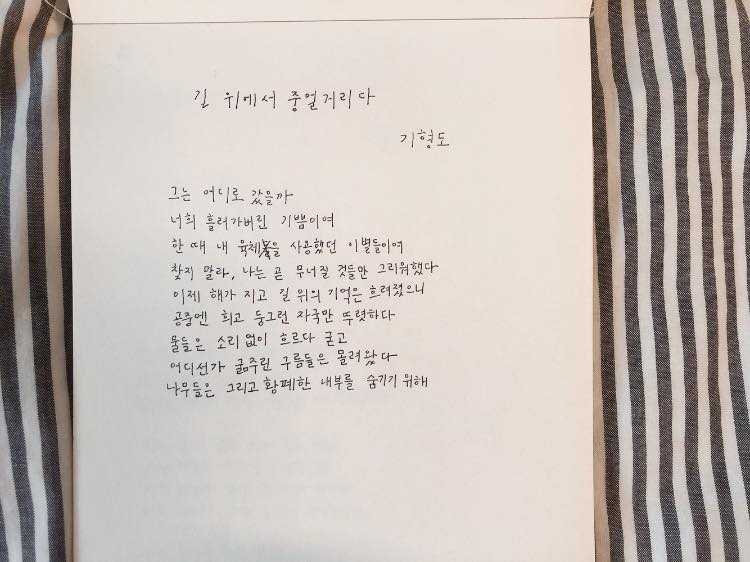 길 위에서 중얼거리다
기형도
그는 어디로 갔을까
너희 흘러가버린 기쁨이여
한 때 내 육체을 사용했던 이별들이여
찾지 말라, 나는 곧 무너질 것들만 그리워했다
이제 해가 지고 길 위의 기억은 흐려졌으니
공중엔 희고 둥그런 자국만 뚜렷하다
물들은 소리없이 흐르다 굳고
어디선가 굶주린 구름들은 몰려왔다
나무들은 그리고 황폐한 내부를 숨기기 위해